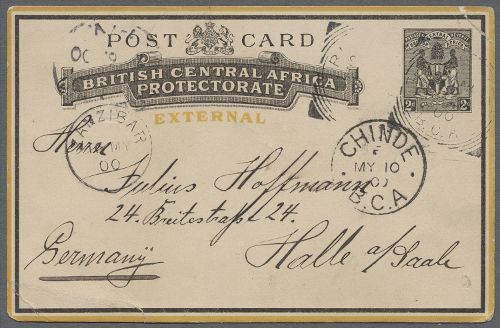 POST CARD
BRITISH CENTRAL AFRICA
PROTECTORATE
EXTERNAL
BRITISH CENTRAL AFRICA
2d 2d
B.C.A
ZANZIBAR
MY
00
CHINDE
MY 10
00
B.C.A
Herrn
Julius Hoffmann
24. Breitestraße 24.
Halle a/Saale
Germany